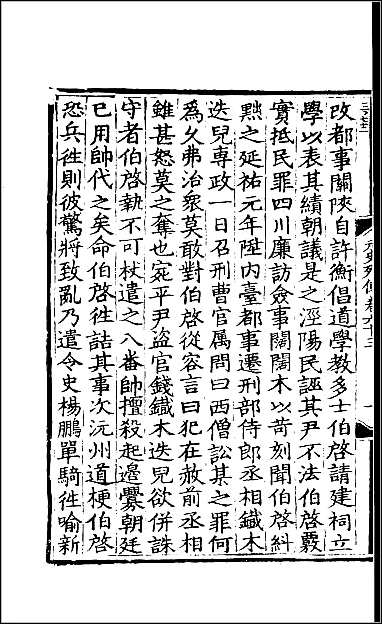 改都事關陝自許衡倡道學教多士伯啓請建祠立
學以表其績朝議是之涇陽民誣其尹不法伯啓覈
實抵民罪四川廉訪僉事闊闊木以苛刻聞伯啓糾
黜之延祐元年陞内臺都事遷刑部侍郎丞相鐵木
迭兒專政一日召刑曹官屬問曰西僧訟某之罪何
爲久弗治衆莫敢對伯啓從容言曰犯在赦前丞相
雖甚怒莫之奪也宛平尹盜官錢鐵木迭兒欲併誅
守者伯啓執不可杖遣之八番帥擅殺起邊釁朝廷
已用帥代之矣命伯啓往詰其事次沅州道梗伯啓
恐兵往則彼驚將致亂乃遣令史楊鵬單騎往喻新
元史列傳卷六十三
一